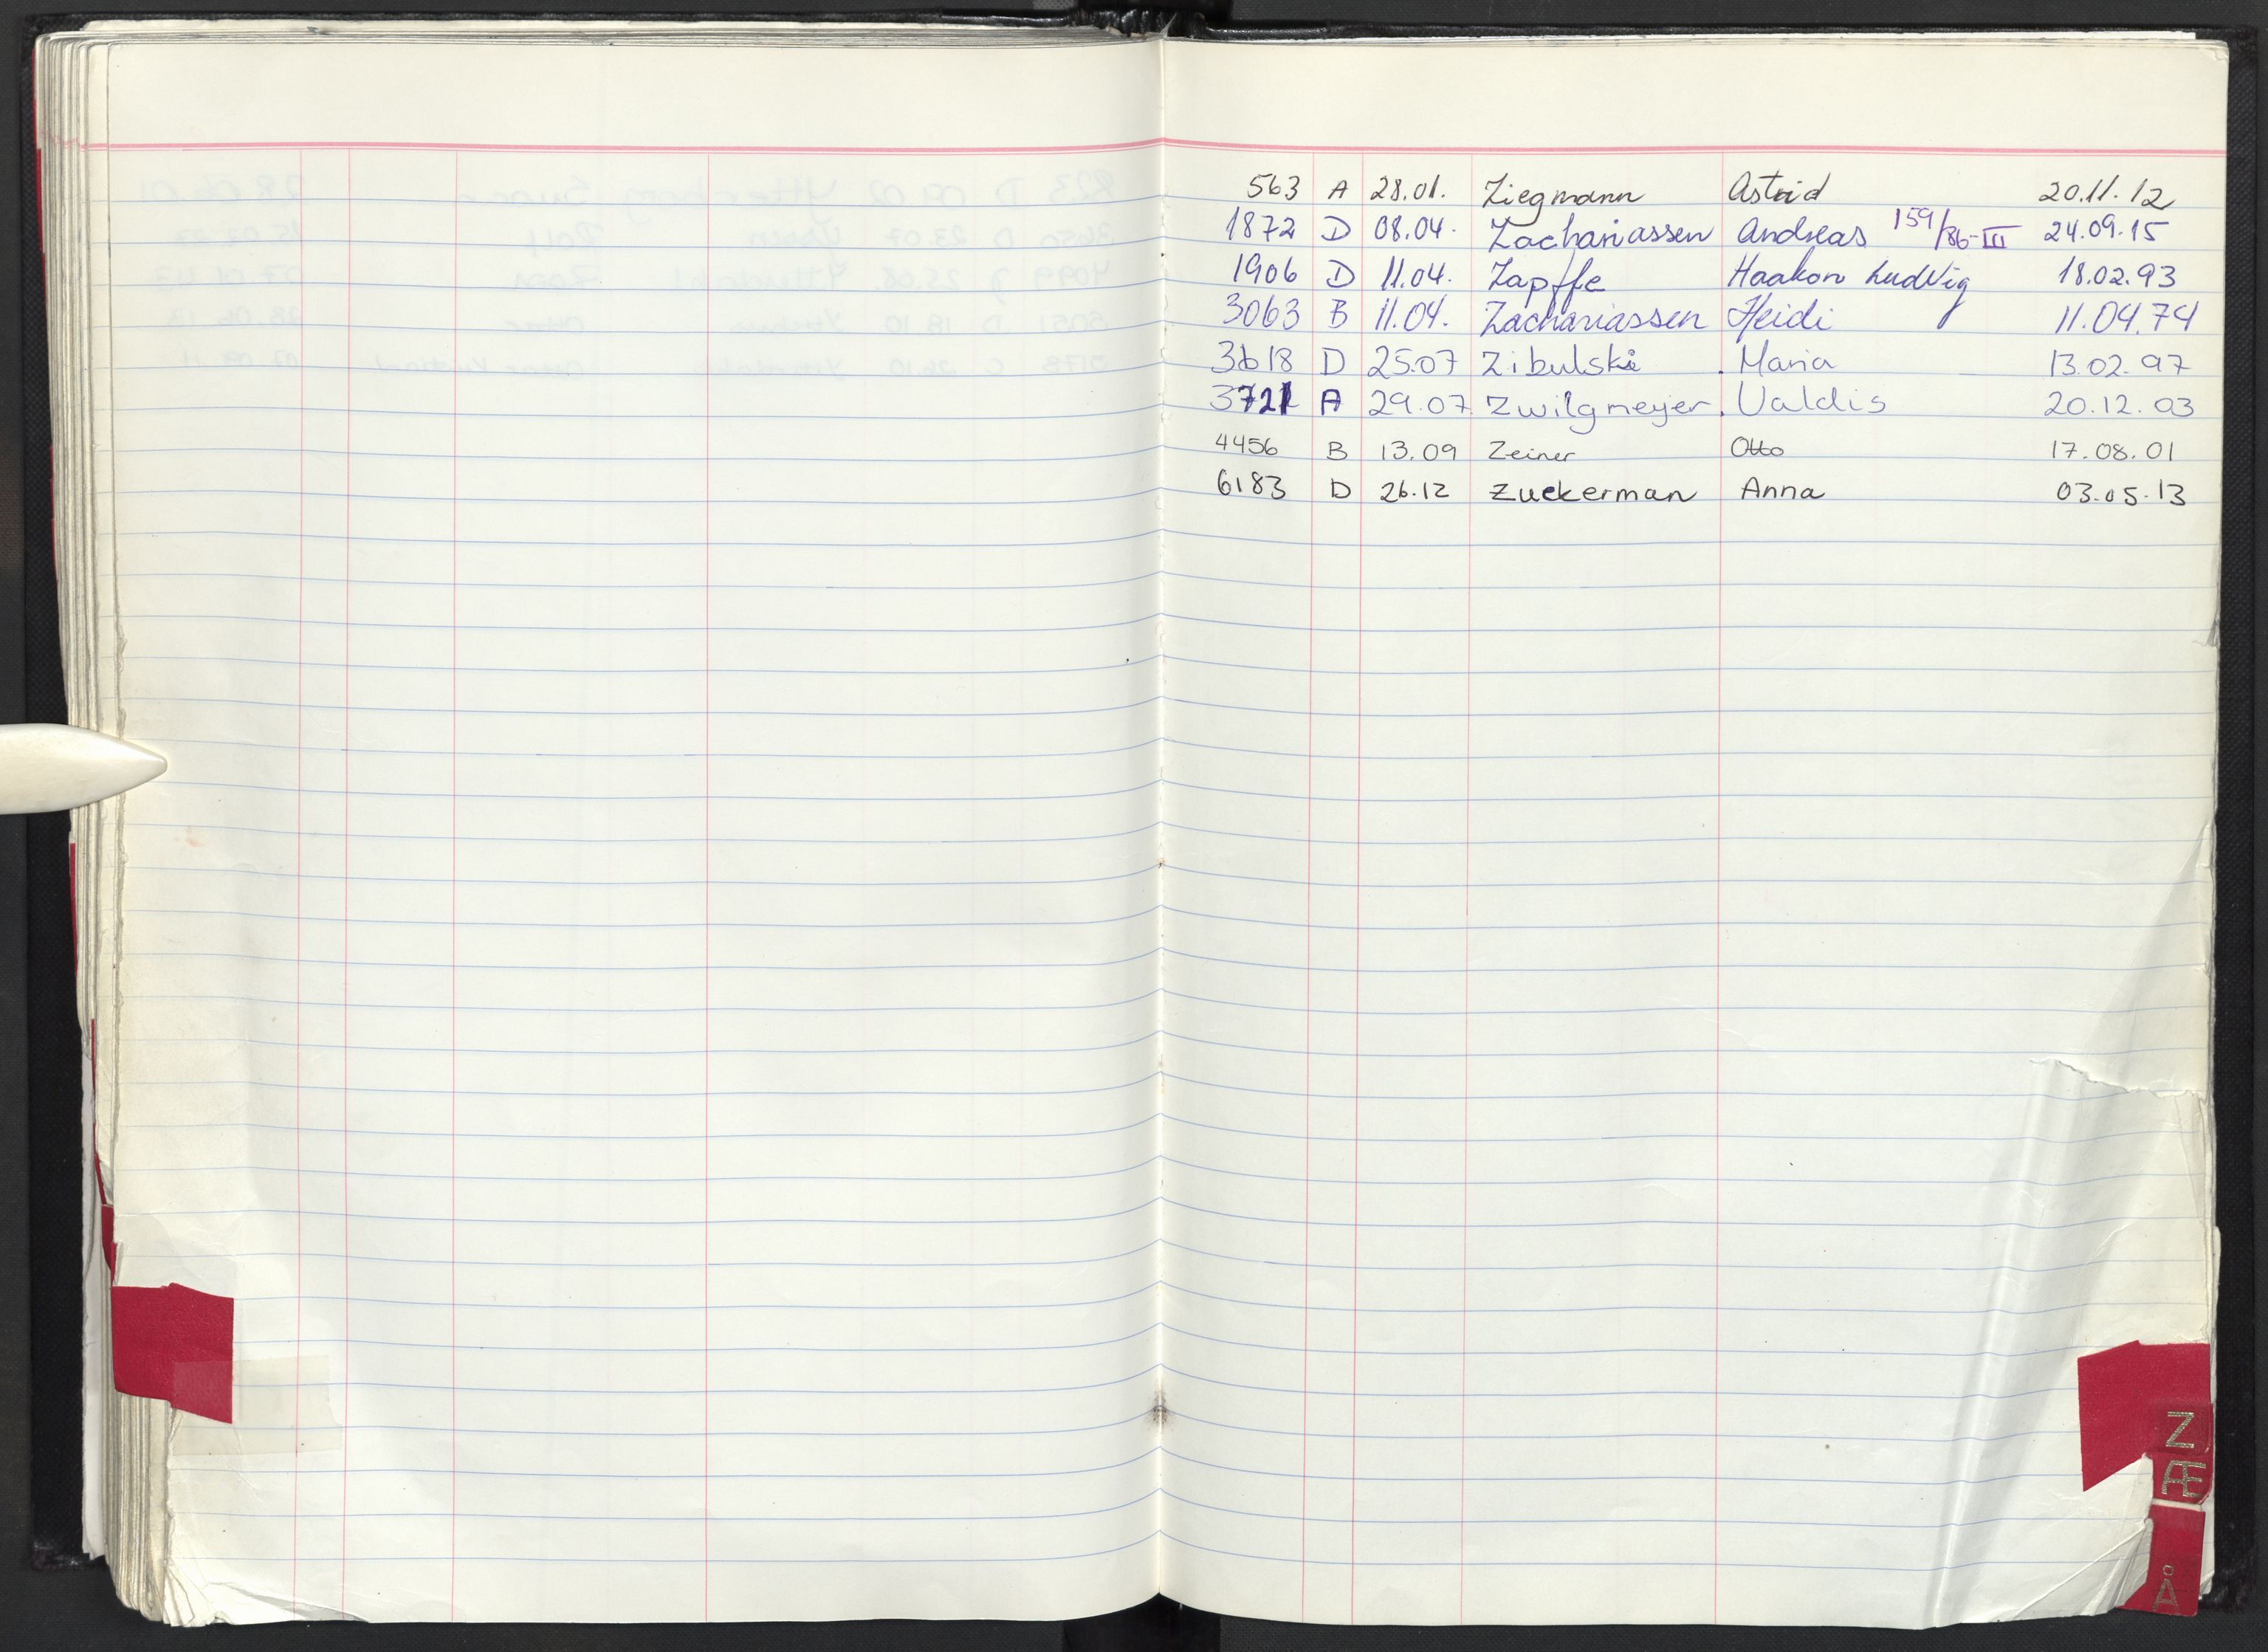 563 A 28.01. Ziegmann Astrid 20.11.12
1872 D 08.04. Zachariassen Andreas 159/86-III 24.09.15
1906 D 11.04. Zapffe Haakon Ludvig 18.02.93
3063 B 11.04. Zachariassen Heidi 11.04.74
3618 D 25.07 Zibulski Maria 13.02.97
3721 A 29.07 Zwilgmeyer Valdis 20.12.03
4456 B 13.09 Zeiner Otto 17.08.01
6183 D 26.12 Zuckerman Anna 03.05.13
Z
Æ
Å